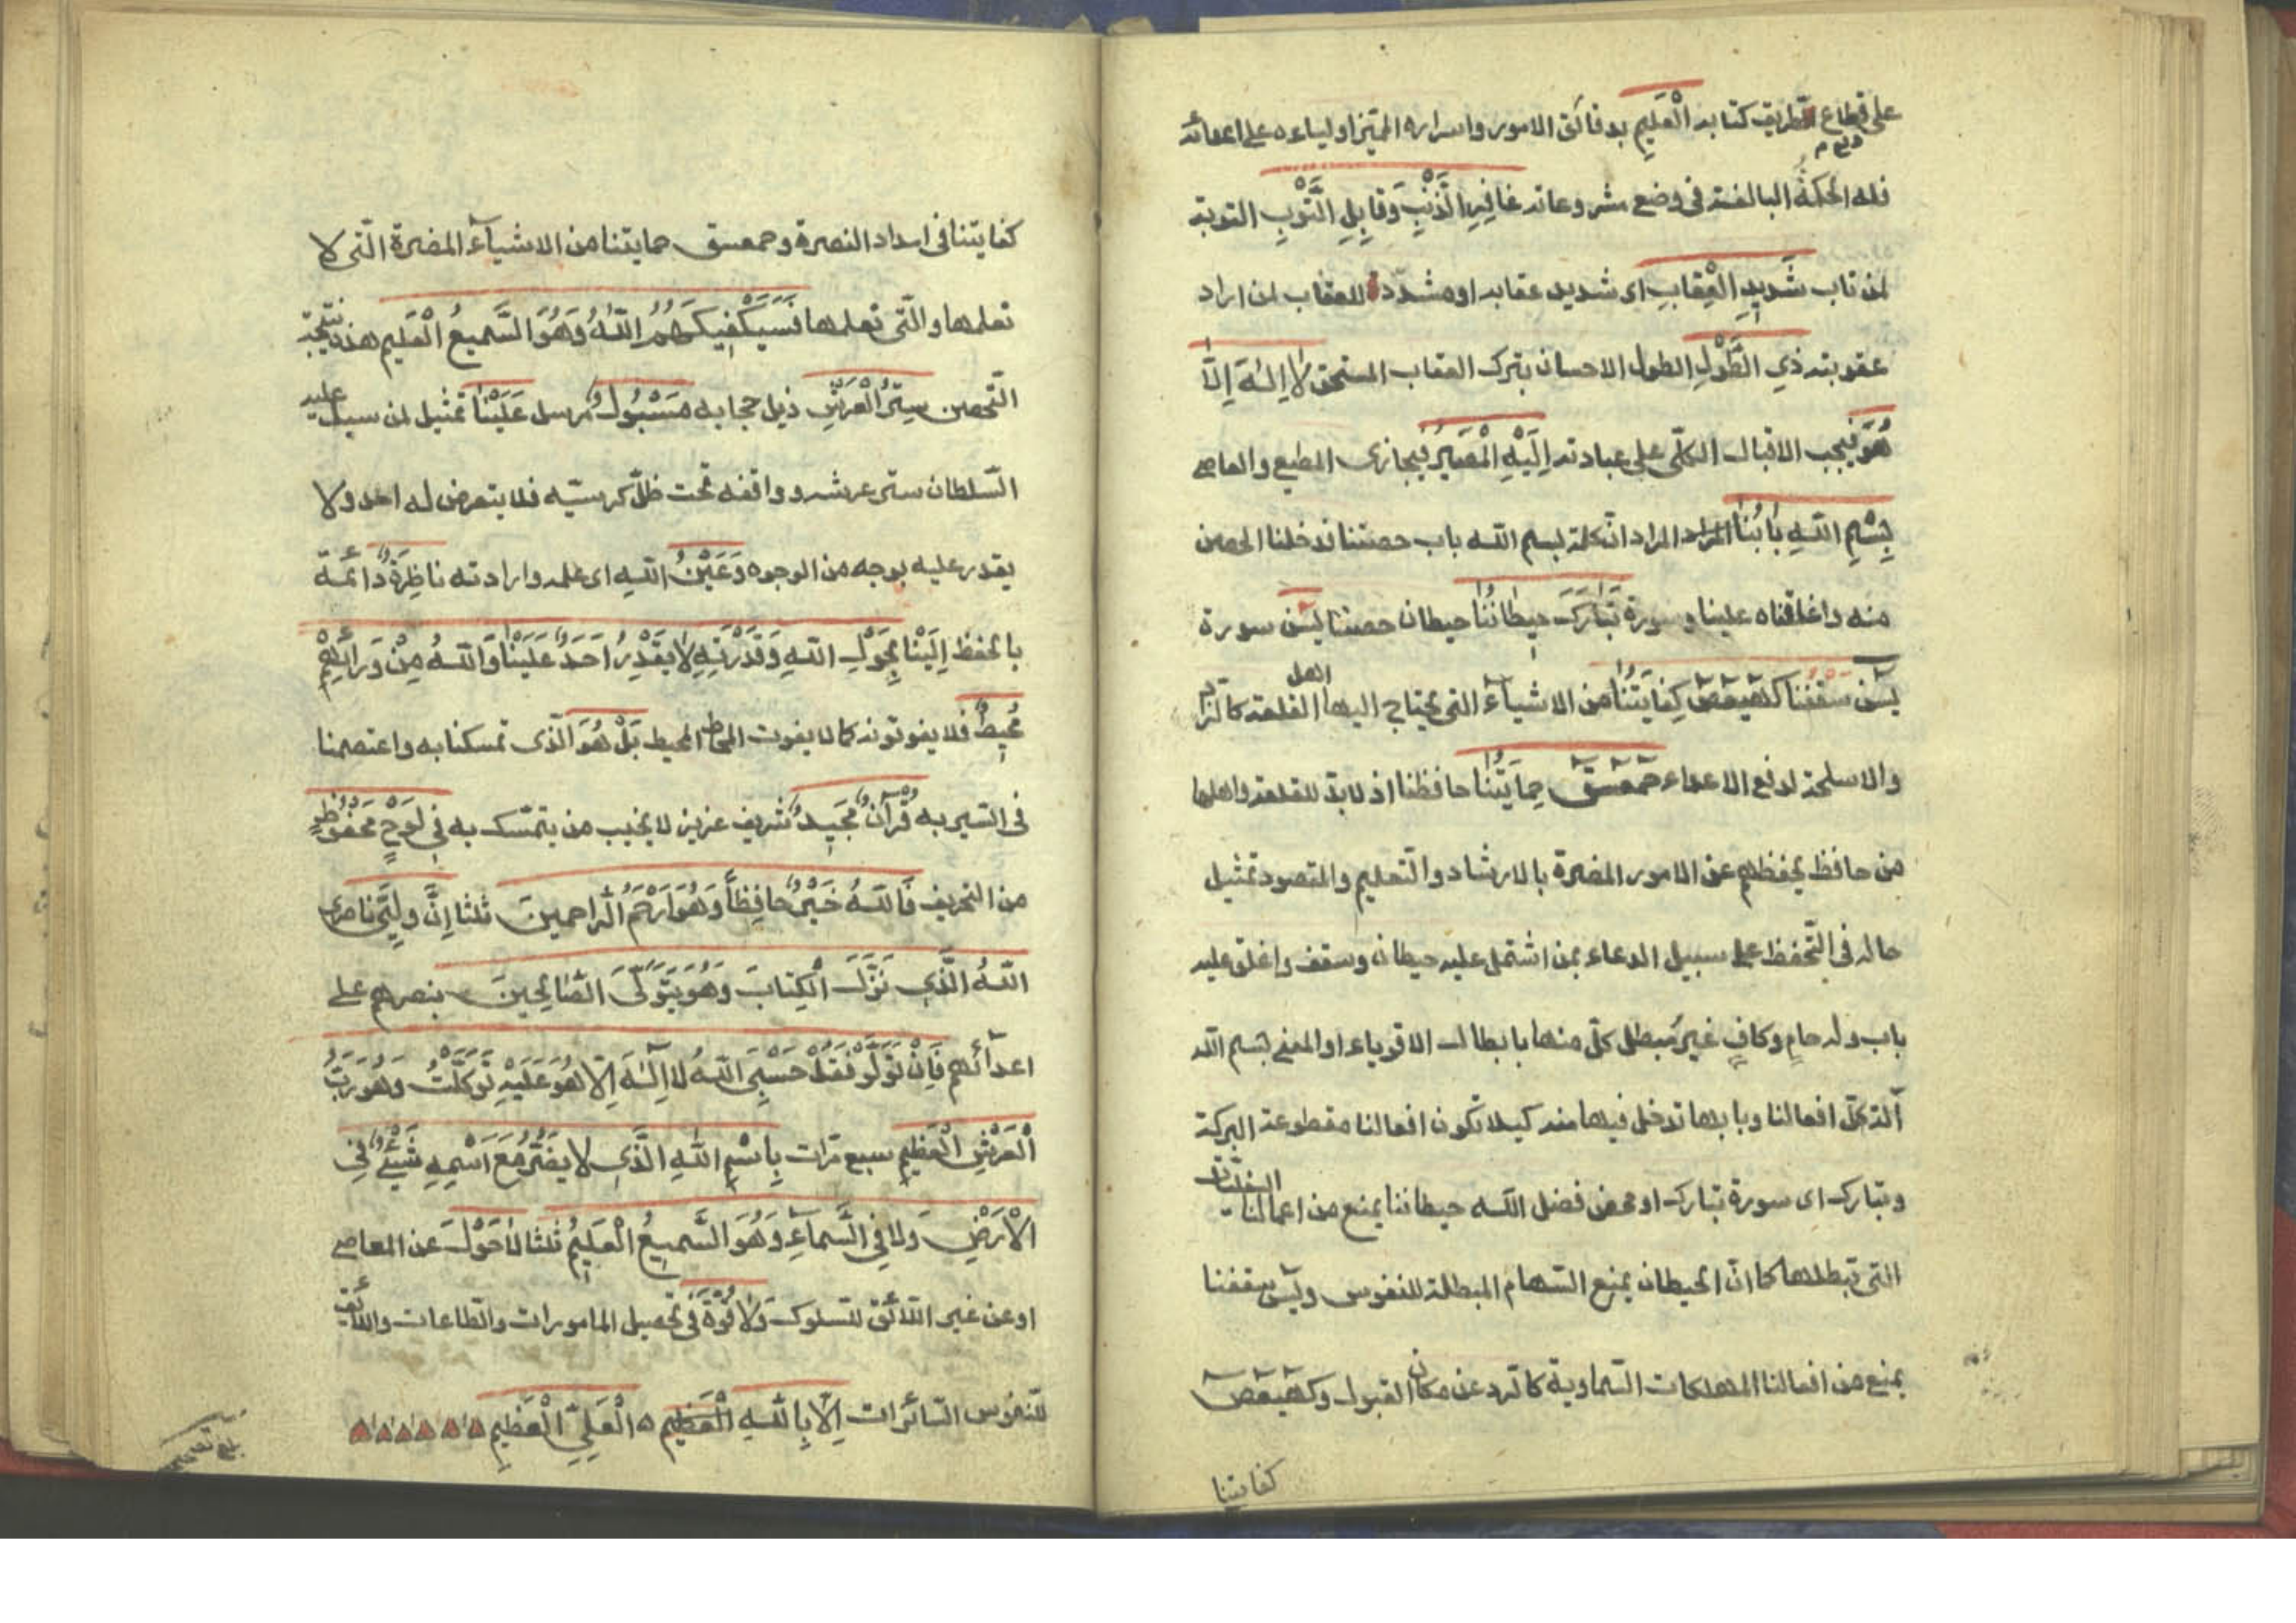 على قطاع الطريق كتابه الْعَلِيمِ بدقائق الامور واسراره المميّز اولياءه على اعدائه
فله الحكمةُ البالغة فى وضع مشروعاته غَافِرِ الذَّنْبِ وَقَابِلِ التَّوْبِ التوبة
لمن تاب شَدِيدِ الْعِقَابِ اى شديد عقابه او مشدّد للعقاب لمن اراد
عقوبته ذِي الطَّوْلِ الطول الاحسان بترك العقاب المستحق لَا إِلٰهَ إِلَّا
هُوَ فيجب الاقبال الكلّى على عبادته إِلَيْهِ الْمَصِيرُ فيجازى المطيع والعاصى
بِسْمِ اللّٰهِ بَابُنَا المراد المراد انّ كلمة بسم الله باب حصننا ندخلنا الحصن
منه واغلقناه علينا وسورة تَبَارَكَ حِيطَانُنَا حيطان حصننا يٰسٓ سورة
يٰسٓ سقفنا كٓهٰيٰعٓصٓ كِفَايَتُنَا من الاشيآء التى يحتاج اليها اهل القلعة كالزاد
والاسلحة لدفع الاعداء حٰمٓعٓسٓقٓ حِمَايَتُنَا حافظنا اذ لا بدّ للقلعة واهلها
من حافظ يحفظهم عن الامور المضرة بالارشاد والتعليم والمقصود تمثيل
حاله فى التّحفظ على سبيل الدعاء بمن اشتمل عليه حيطان وسقف واغلق عليه
باب وله حامٍ وكافٍ غيرُ مُبطل كلّ منها بابطال الاقوياء او المعنى بسم الله
آلة كلّ افعالنا وبابها ندخل فيها منه كيلا تكون افعالنا مقطوعة البركة
وتبارك اى سورة تبارك او محض فضل الله حيطاننا يمنع من اعمالنا
التى تبطلها كما انّ الحيطان يمنع السّهام المبطلة للنفوس ويٰسٓ سقفنا
يمنع من افعالنا المهلكات السّماوية كالرد عن مكان القبول وكٓهٰيٰعٓصٓ
كفايتنا
كفايتنا فى امداد النصرة وحمعسق حمايتنا من الاشيآء المضرة الّتى لا
نعلمها والّتى نعلمها فَسَيَكْفِيكَهُمُ اللّٰهُ وَهُوَ السَّمِيعُ الْعَلِيم هذه نتيجة
التّحصن سِتْرُ الْعَرْشِ ذيل حجابه مَسْبُولٌ مرسل عَلَيْنَا تمثيل لمن سبل عليه
السّلطان ستر عرشه و واقفه تحت ظلّ كرسيّه فلا يتعرض له احد ولا
يقدر عليه بوجه من الوجوه وَعَيْنُ اللّٰهِ اى علمه وارادته نَاظِرَةٌ دائمة
بالحفظ إِلَيْنَا بِحَوْلِ اللّٰهِ وَقُدْرَتِهِ لَا يَقْدِرُ أَحَدٌ عَلَيْنَا وَاللّٰهُ مِنْ وَرَائِهِمْ
مُحِيطٌ فلا يفوتونه كما لا يفوت المحاط المحيط بَلْ هُوَ الّذى تمسكنا به واعتصمنا
فى السّير به قُرْآنٌ مَجِيدٌ شريف عزيز لا يخيب من يتمسّك به فِي لَوْحٍ مَحْفُوظٍ
من التحريف فَاللّٰهُ خَيْرٌ حَافِظاً وَهُوَ أَرْحَمُ الرَّاحِمِينَ ثلثا إِنَّ وَلِيِّيَ ناصرى
اللّٰهُ الَّذِي نَزَّلَ الْكِتَابَ وَهُوَ يَتَوَلَّى الصَّالِحِينَ ينصرهم على
اعدآئهم فَإِنْ تَوَلَّوْا فَقُلْ حَسْبِيَ اللّٰهُ لَا إِلٰهَ إِلَّا هُوَ عَلَيْهِ تَوَكَّلْتُ وَهُوَ رَبُّ
الْعَرْشِ الْعَظِيمِ سبع مرّات بِاسْمِ اللّٰهِ الَّذِي لَا يَضُرُّ مَعَ اسْمِهِ شَيْئٌ فِي
الْأَرْضِ وَلَا فِي السَّمَآءِ وَهُوَ السَّمِيعُ الْعَلِيمُ ثلثا لَا حَوْلَ عن المعاصى
او عن غير اللّائق للسلوك وَلَا قُوَّةَ فى تحصيل المامورات والطاعات واللائق
للنفوس السّائرات إِلَّا بِاللّٰهِ الْعَظِيمِ ه الْعَلِيِّ الْعَظِيمِ